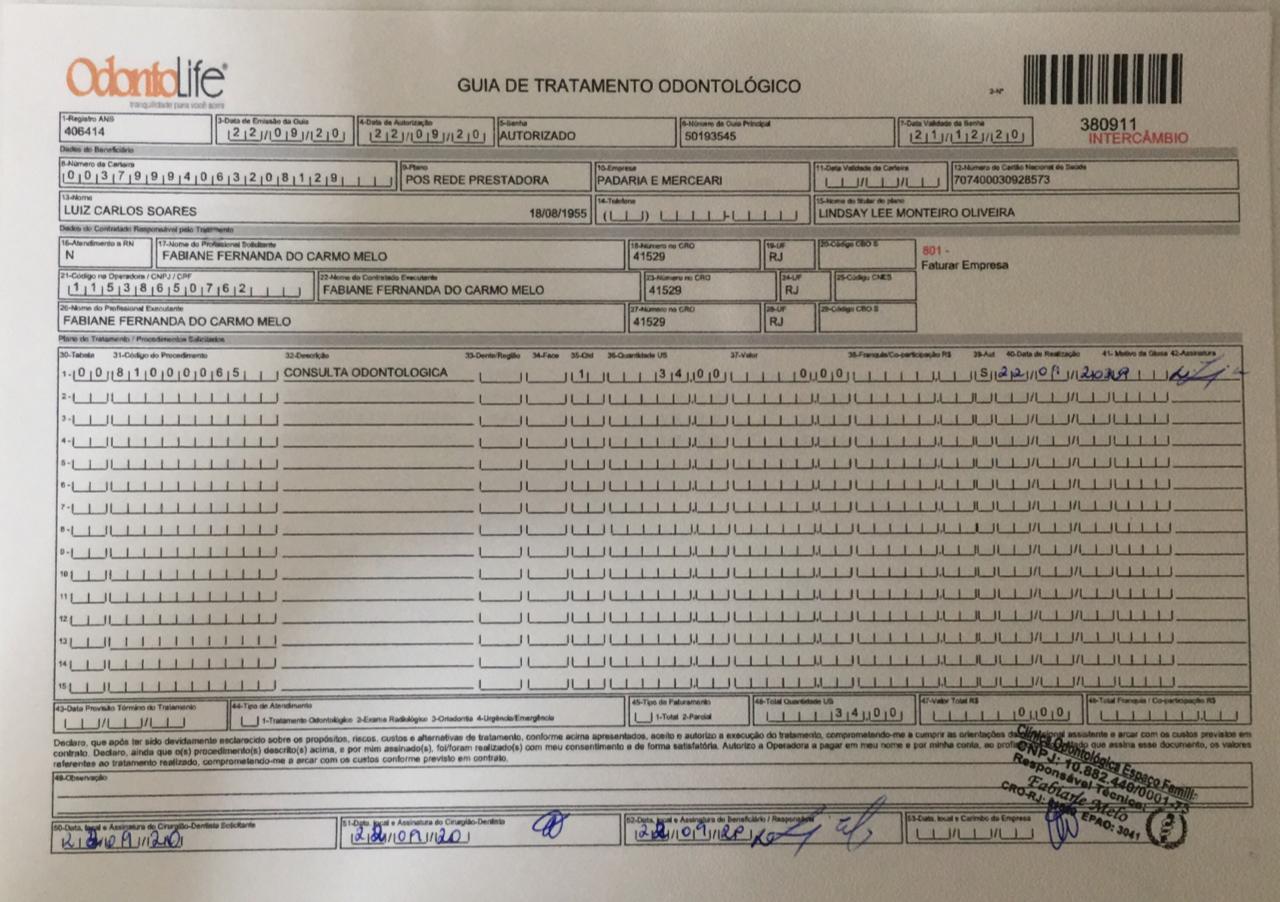 OdontoLife®
tranquilidade para você sorrir
GUIA DE TRATAMENTO ODONTOLÓGICO
2-Nº
380911
INTERCÂMBIO
1-Registro ANS
406414
3-Data de Emissão da Guia
22/09/20
4-Data de Autorização
22/09/20
5-Senha
AUTORIZADO
6-Número da Guia Principal
50193545
7-Data Validade da Senha
21/12/20
Dados do Beneficiário
8-Número da Carteira
00379994063208129
9-Plano
POS REDE PRESTADORA
10-Empresa
PADARIA E MERCEARI
11-Data Validade da Carteira
12-Número do Cartão Nacional de Saúde
707400030928573
13-Nome
LUIZ CARLOS SOARES 18/08/1955
14-Telefone
15-Nome do titular do plano
LINDSAY LEE MONTEIRO OLIVEIRA
Dados do Contratado Responsável pelo Tratamento
16-Atendimento a RN
N
17-Nome do Profissional Solicitante
FABIANE FERNANDA DO CARMO MELO
18-Número no CRO
41529
19-UF
RJ
20-Código CBO S
801 -
Faturar Empresa
21-Código na Operadora / CNPJ / CPF
11538650762
22-Nome do Contratado Executante
FABIANE FERNANDA DO CARMO MELO
23-Número no CRO
41529
24-UF
RJ
25-Código CNES
26-Nome do Profissional Executante
FABIANE FERNANDA DO CARMO MELO
27-Número no CRO
41529
28-UF
RJ
29-Código CBO S
Plano do Tratamento / Procedimentos Solicitados
30-Tabela 31-Código do Procedimento 32-Descrição 33-Dente/Região 34-Face 35-Qtd 36-Quantidade US 37-Valor 38-Franquia/Co-participação R$ 39-Aut 40-Data de Realização 41- Motivo da Glosa 42-Assinatura
1- 00 81000065 CONSULTA ODONTOLOGICA 1 34,00 0,00 S 22/09/
2-
3-
4-
5-
6-
7-
8-
9-
10
11
12
13
14
15
43-Data Previsão Término do Tratamento
44-Tipo de Atendimento
1-Tratamento Odontológico 2-Exame Radiológico 3-Ortodontia 4-Urgência/Emergência
45-Tipo de Faturamento
1-Total 2-Parcial
46-Total Quantidade US
34,00
47-Valor Total R$
0,00
48-Total Franquia / Co-participação R$
Declaro, que após ter sido devidamente esclarecido sobre os propósitos, riscos, custos e alternativas de tratamento, conforme acima apresentados, aceito e autorizo a execução do tratamento, comprometendo-me a cumprir as orientações do profissional assistente e arcar com os custos previstos em
contrato. Declaro, ainda que o(s) procedimento(s) descrito(s) acima, e por mim assinado(s), foi/foram realizado(s) com meu consentimento e de forma satisfatória. Autorizo a Operadora a pagar em meu nome e por minha conta, ao profissional contratado que assina esse documento, os valores
referentes ao tratamento realizado, comprometendo-me a arcar com os custos conforme previsto em contrato.
49-Observação
Clínica Odontológica Espaço Famili
CNPJ: 10.882.440/0001-75
Responsável Técnica:
Fabiane Melo
CRO-RJ: EPAO: 3041
50-Data, local e Assinatura do Cirurgião-Dentista Solicitante
22/09/20
51-Data, local e Assinatura do Cirurgião-Dentista
22/09/20
52-Data, local e Assinatura do Beneficiário / Responsável
22/09/20
53-Data, local e Carimbo da Empresa